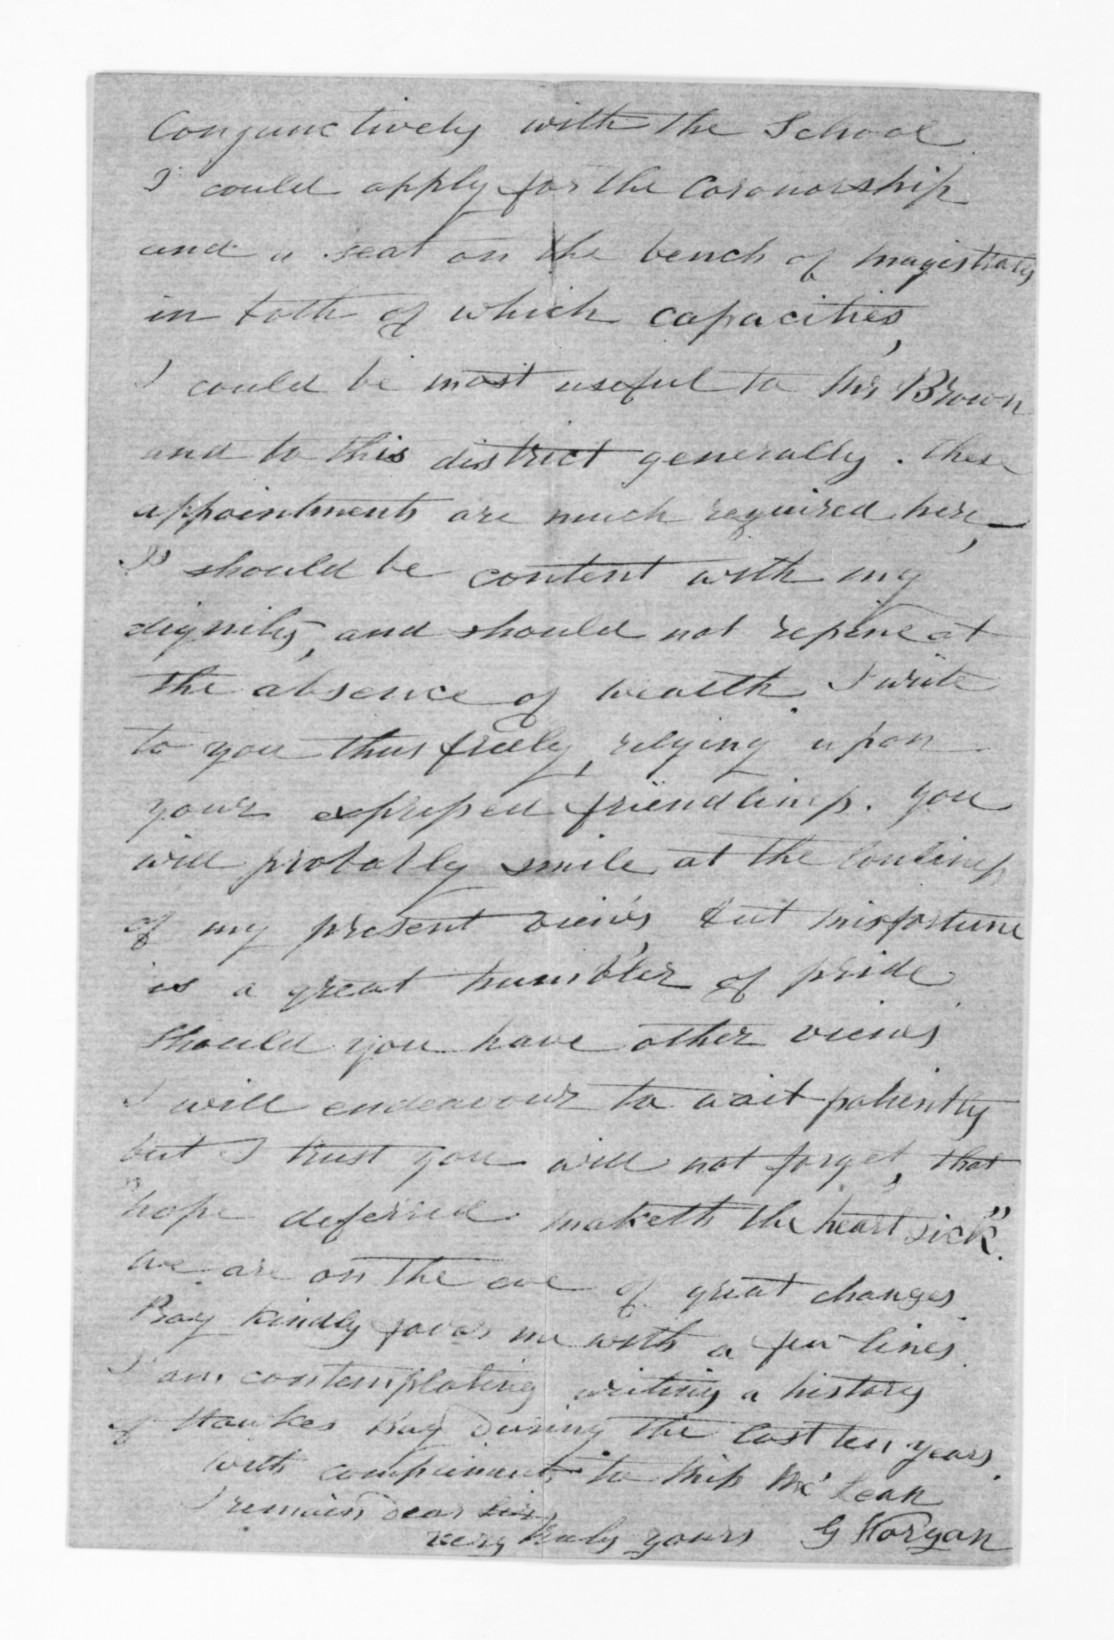 Conjunctively with the School
I could apply for the Coronorship
and a seat on the bench of Magistrates
in both of which capacities,
I could be most useful to Mr Brown
and to this district generally. These
appointments are much required here,
I should be content with my
dignity, and should not repine at
the absence of wealth. I write
to you thus freely, relying upon
your expressed friendliness. You
will probably smile at the lowliness
of my present views, but misfortune
is a great humbler of pride
Should you have other views
I will endeavour to wait patiently
but I trust you will not forget, that
"hope deferred maketh the heart sick".
We are on the eve of great changes
Pray kindly favor me with a few lines.
I am contemplating writing a history
of Hawkes Bay During the last ten years.
With compliments to Miss McLean
I remain Dear Sir,
very truly yours G Worgan